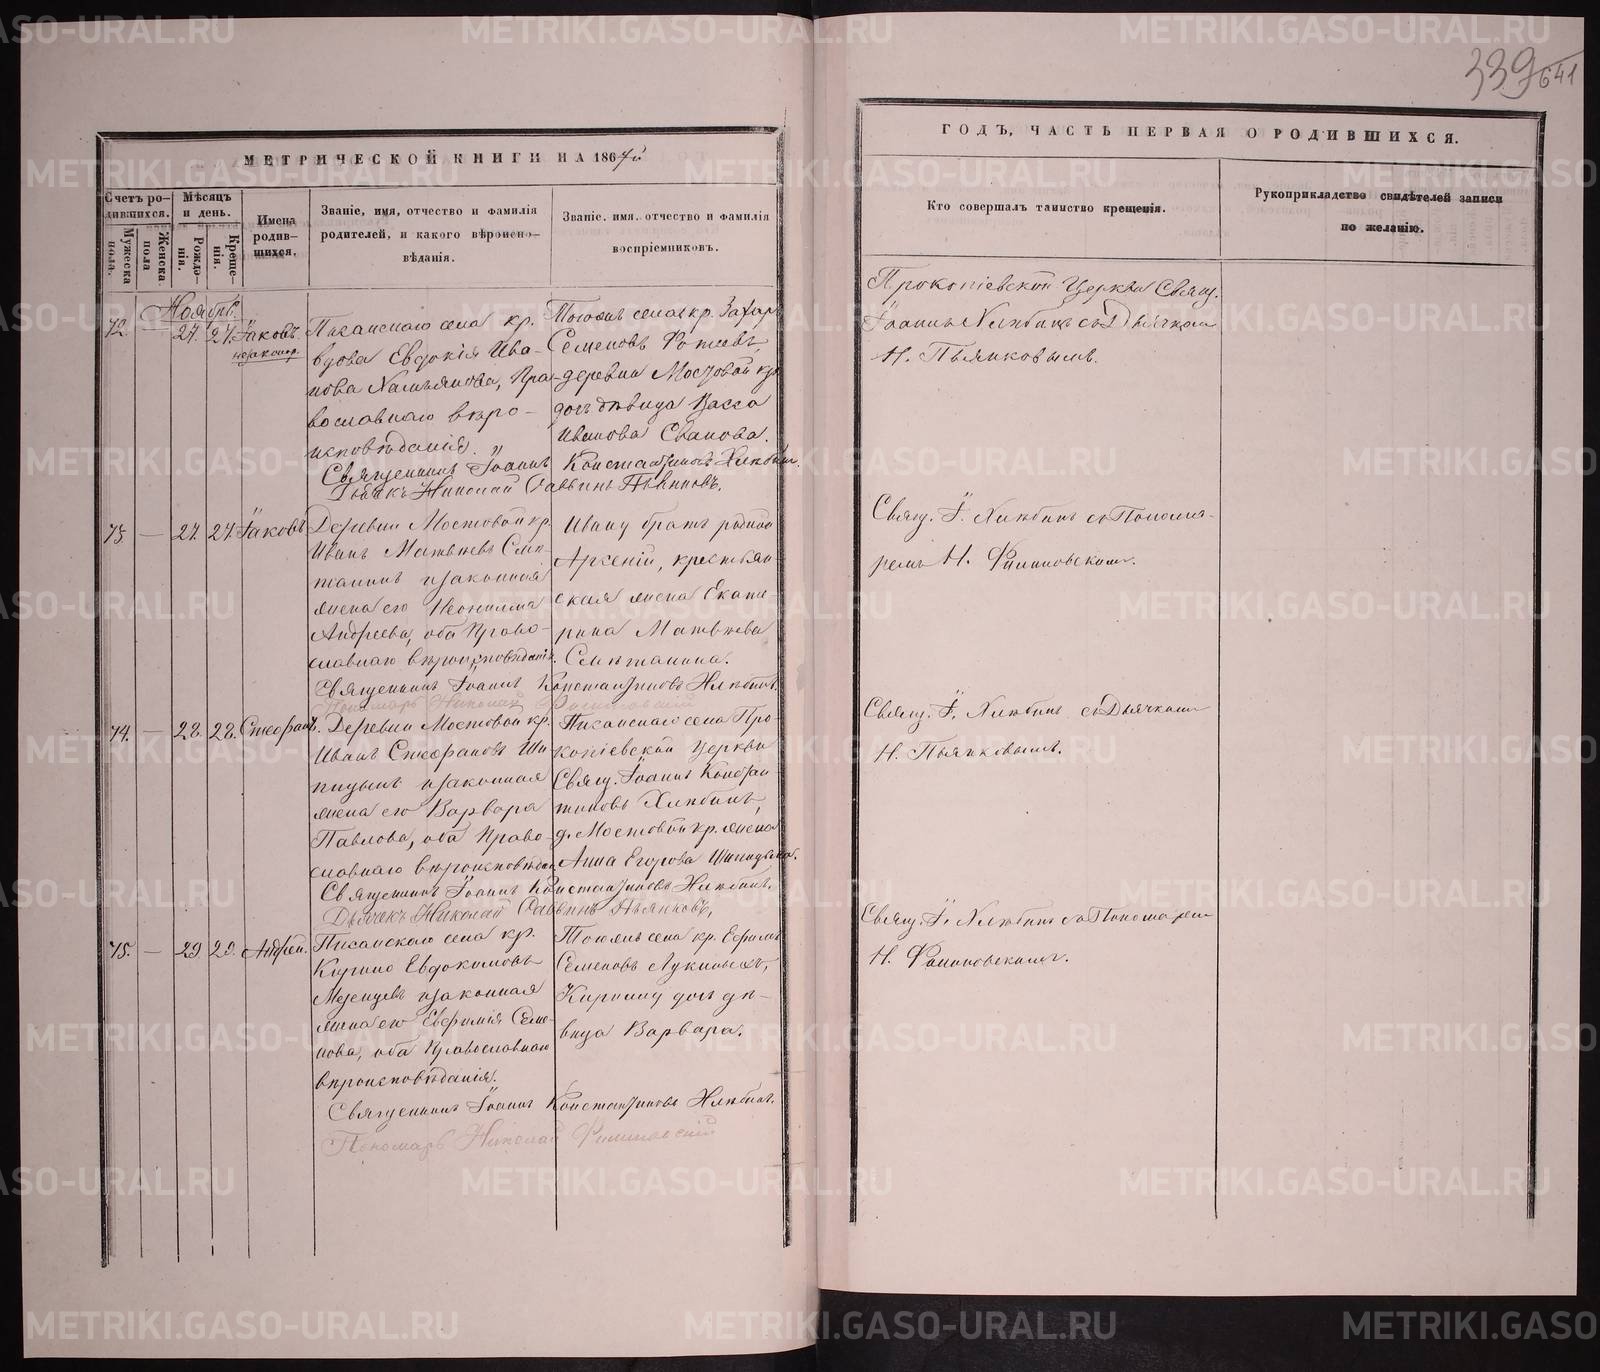 339
641
МЕТРИЧЕСКОЙ КНИГИ НА 1867й
ГОДЪ, ЧАСТЬ ПЕРВАЯ О РОДИВШИХСЯ.
Счетъ ро-
дившихся.
Мужеска
пола.
Женска
пола
Мѣсяцъ
и день.
Рожде-
нія.
Креще-
нія.
Имена
родив-
шихся.
Званіе, имя, отчество и фамилія
родителей, и какого вѣроиспо-
вѣданія.
Званіе, имя, отчество и фамилія
воспріемниковъ.
Кто совершалъ таинство крещенія.
Рукоприкладство свидѣтелей записи
по желанію.
Ноябрь.
72. 27. 27. Іаковъ
незакон.
села кр.
вдова Евдокія Ива-
нова Пра-
вославнаго вѣро-
исповѣданія.
Священникъ Іоаннъ Константиновъ Хлѣбинъ.
Дьячекъ Николай Саввинъ Пьянковъ.
Тогожъ села кр. Захаръ
Семеновъ
деревни Мостовой кр.
дочь дѣвица Васса
Иванова
Прокопіевской Церкви Свящ.
Іоаннъ Хлѣбинъ съ Дьячкомъ
Н. Пьянковымъ.
73. — 27. 27. Іаковъ
Деревни Мостовой кр.
Иванъ Матвѣевъ Смѣ-
танинъ и законная
жена его Неонилла
Андреева, оба право-
славнаго вѣроисповѣданія.
Священникъ Іоаннъ Константиновъ Хлѣбинъ.
Пономарь Николай
Ивану братъ родной
Арсеній, крестьян-
ская жена Екате-
рина Матвѣева
Смѣтанина.
Свящ. І. Хлѣбинъ съ Понома-
ремъ Н.
74. — 28. 28. Стефанъ.
Деревни Мостовой кр.
Иванъ Стефановъ Ши-
пицынъ и законная
жена его Варвара
Павлова, оба право-
славнаго вѣроисповѣдан.
Священникъ Іоаннъ Константиновъ Хлѣбинъ.
Дьячекъ Николай Саввинъ Пьянковъ,
села Про-
копіевской церкви
Свящ. Іоаннъ Констан-
тиновъ Хлѣбинъ,
д. Мостовой кр. жена
Анна Егорова Шипицына.
Свящ. І. Хлѣбинъ съ Дьячкомъ
Н. Пьянковымъ.
75. — 29. 29. Андрей.
села кр.
Кирило Евдокимовъ
Мезенцевъ и законная
жена его Евфимія Семе-
нова, оба православнаго
вѣроисповѣданія.
Священникъ Іоаннъ Константиновъ Хлѣбинъ.
Пономарь Николай
Тогожъ села кр. Ефимъ
Семеновъ
Кирилу дочь дѣ-
вица Варвара.
Свящ. І. Хлѣбинъ съ Пономаремъ
Н.
METRIKI.GASO-URAL.RU